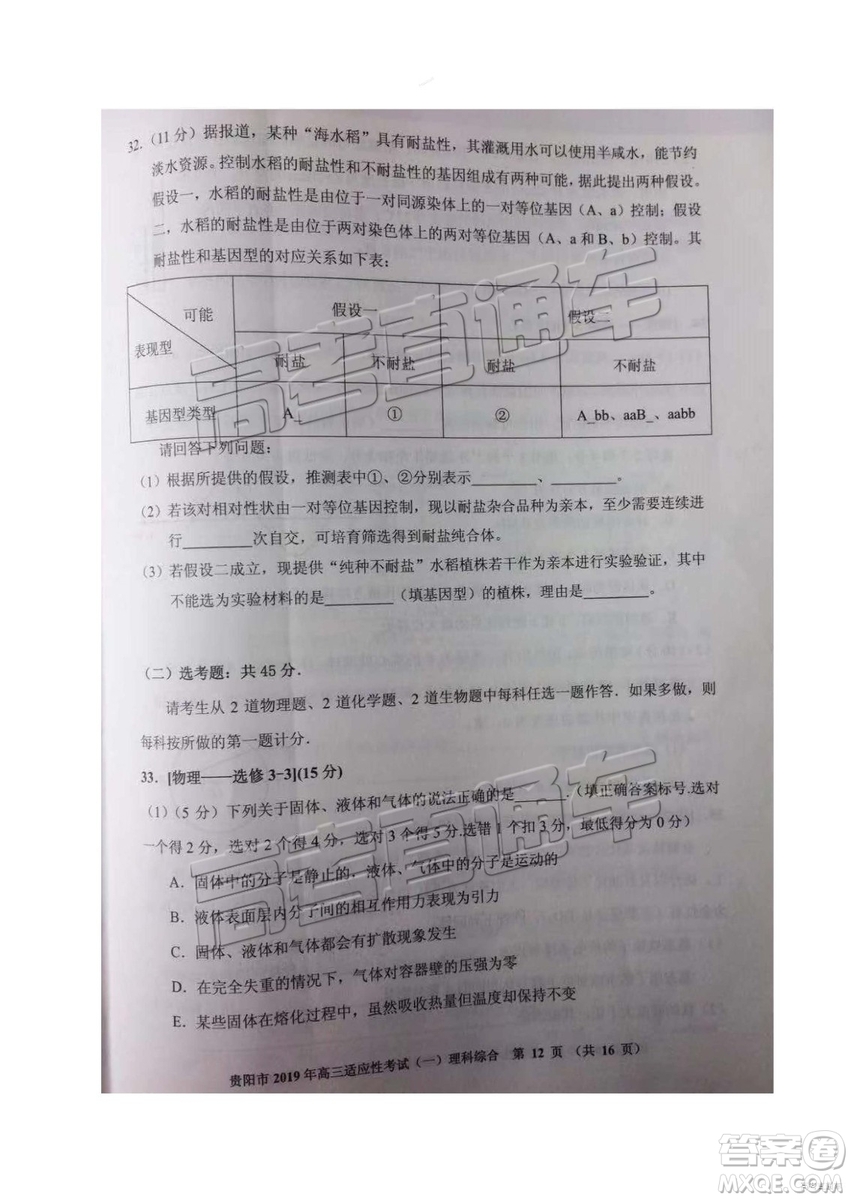 32.（11 分）据报道，某种“海水稻”具有耐盐性，其灌溉用水可以使用半咸水，能节约
淡水资源。控制水稻的耐盐性和不耐盐性的基因组成有两种可能，据此提出两种假设。
假设一，水稻的耐盐性是由位于一对同源染色体上的一对等位基因（A、a）控制；假设
二，水稻的耐盐性是由位于两对染色体上的两对等位基因（A、a 和 B、b）控制。其
耐盐性和基因型的对应关系如下表：
可能 假设一 假设二
表现型
耐盐 不耐盐 耐盐 不耐盐
基因型类型 A_ ① ② A_bb、aaB_、aabb
请回答下列问题：
（1）根据所提供的假设，推测表中①、②分别表示________、________。
（2）若该对相对性状由一对等位基因控制，现以耐盐杂合品种为亲本，至少需要连续进
行________次自交，可培育筛选得到耐盐纯合体。
（3）若假设二成立，现提供“纯种不耐盐”水稻植株若干作为亲本进行实验验证，其中
不能选为实验材料的是________（填基因型）的植株，理由是________。
（二）选考题：共 45 分．
请考生从 2 道物理题、2 道化学题、2 道生物题中每科任选一题作答．如果多做，则
每科按所做的第一题计分．
33．[物理——选修 3-3](15 分)
（1）（5 分）下列关于固体、液体和气体的说法正确的是______．（填正确答案标号.选对
一个得 2 分，选对 2 个得 4 分，选对 3 个得 5 分.选错 1 个扣 3 分，最低得分为 0 分）
A．固体中的分子是静止的，液体、气体中的分子是运动的
B．液体表面层内分子间的相互作用力表现为引力
C．固体、液体和气体都会有扩散现象发生
D．在完全失重的情况下，气体对容器壁的压强为零
E．某些固体在熔化过程中，虽然吸收热量但温度却保持不变
贵阳市 2019 年高三适应性考试（一）理科综合 第 12 页 （共 16 页）
高考直通车
高考直通车
答案圈
MXQE.COM